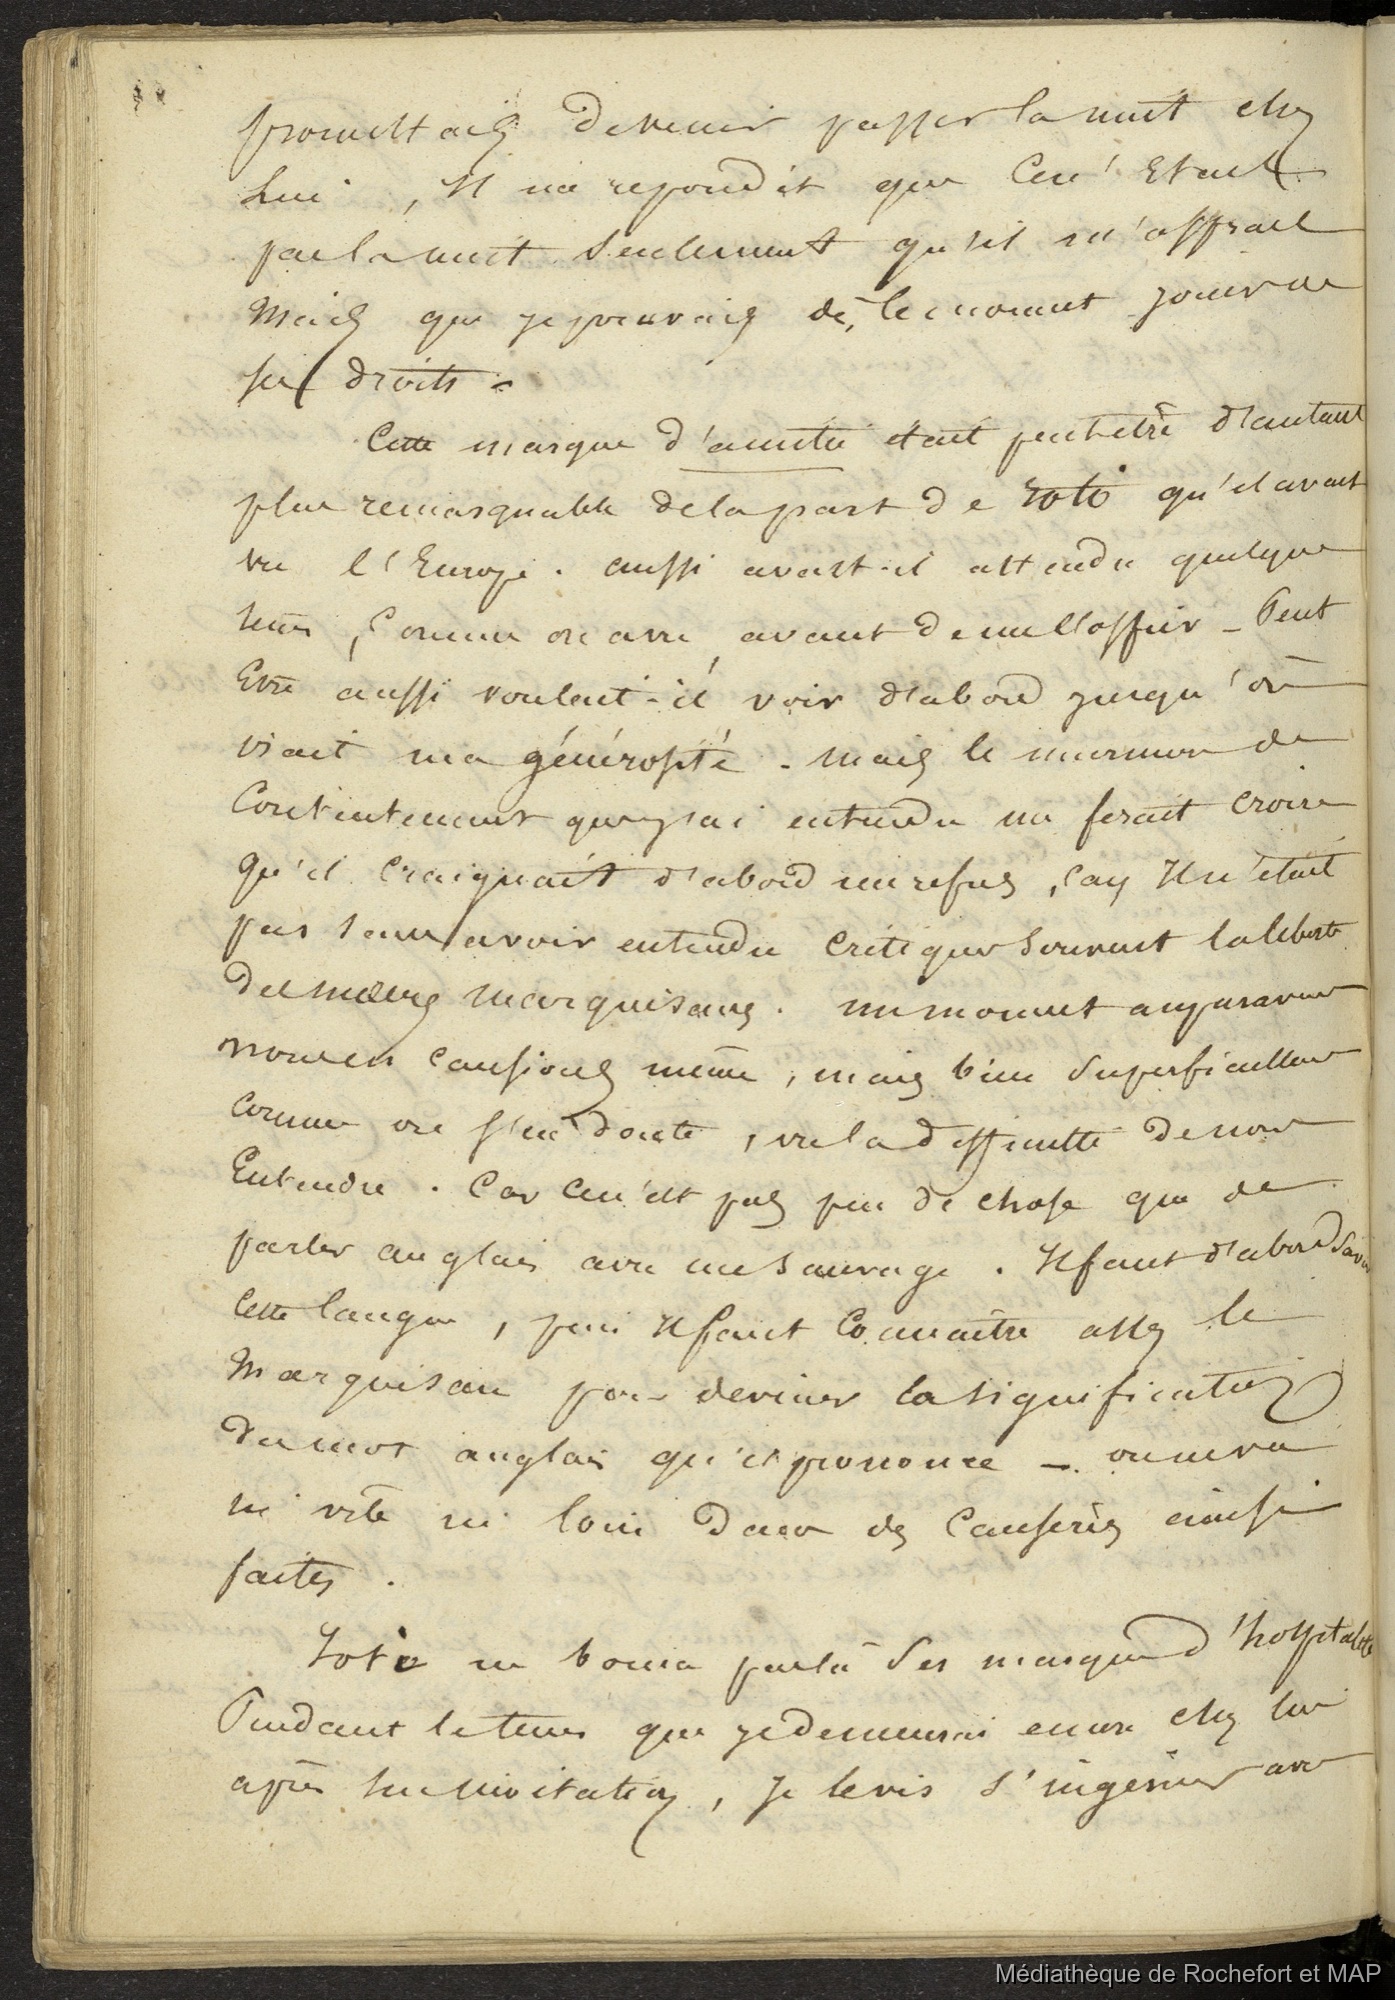 promettais de venir passer la nuit chez
lui, Il me repondit que Ce n'Etait
pas la nuit seulement qu'il m'offrait
Mais que je pouvais dès le moment jouir de
ses droits -
Cette marque d'amitié était peut etre d'autant
plus remarquable de la part de Toto qu'il avait
vu l'Europe. aussi avait-il attendu quelque
tems, Comme on a vu, avant de me l'offrir - Peut
Etre aussi voulait-il voir d'abord jusqu'où
irait ma générosité - mais le murmure de
Contentement que j'ai entendu me ferait Croire
qu'il Craignait d'abord un refus, Car Il n'était
pas sans avoir entendu Critiquer souvent la liberté
des mœurs Marquisanes. un moment auparavant
nous en Causions même, mais bien Superficiellem
Comme on s'en doute, vu la difficulté de nous
Entendre. Car Ce n'est pas peu de chose que de
parler anglais avec un sauvage. Il faut d'abord Savoir
Cette langue, puis Il faut Connaître assez le
Marquisan pour deviner la signification
du mot anglais qu'il prononce - on ne va
ni vite ni loin dans des Causeries ainsi
faites.
Toto ne borna pas là Ses marques d'hospitalité
Pendant le tems que je demeurai encore chez lui
après Son invitation, Je le vis S'ingénier avec
Médiathèque de Rochefort et MAP